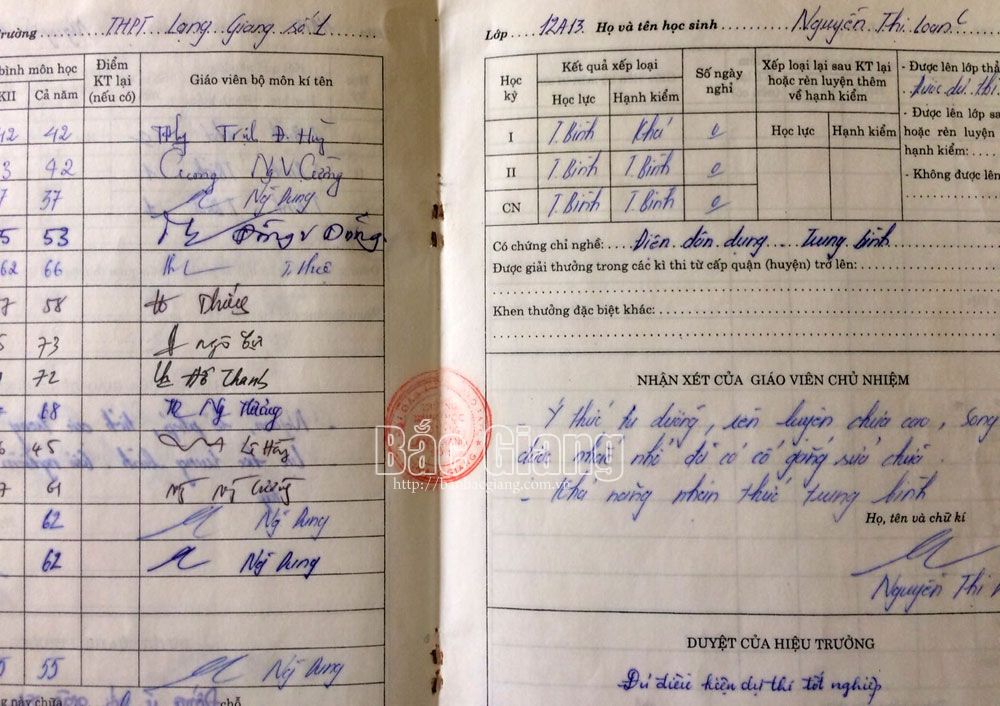 Trường THPT Lạng Giang số 1
bình môn học
Điểm KT lại (nếu có)
Giáo viên bộ môn kí tên
KII Cả năm
42 42
3 42 Cường Ng V Cường
7 37 Ng Dung
5 53 Đồng V Đồng
62 66 T. Huê
7 58 Thắng
5 73 Ngô
72 Hồ Thanh
68 Ng
6 45 Lê Hằng
7 61 Ng Cường
62 Ng Dung
62 Ng Dung
5 55 Ng Dung
ng này chữa chỗ
Lớp 12A13 Họ và tên học sinh Nguyễn Thị Loan C
Học kỳ
Kết quả xếp loại
Học lực Hạnh kiểm
Số ngày nghỉ
Xếp loại lại sau KT lại hoặc rèn luyện thêm về hạnh kiểm
Học lực Hạnh kiểm
- Được lên lớp
Được dự thi
- Được lên lớp
hoặc rèn luyện
hạnh kiểm:
- Không được lên
I T.Bình Khá 0
II T.Bình T.Bình 0
CN T.Bình T.Bình 0
Có chứng chỉ nghề: Điện dân dụng Trung bình
Được giải thưởng trong các kì thi từ cấp quận (huyện) trở lên:
Khen thưởng đặc biệt khác:
NHẬN XÉT CỦA GIÁO VIÊN CHỦ NHIỆM
Ý thức tu dưỡng, rèn luyện chưa cao, song
được nhắc nhở đã có cố gắng sửa chữa
- Khả năng nhận thức trung bình
Họ, tên và chữ kí
Nguyễn Thị
DUYỆT CỦA HIỆU TRƯỞNG
Đủ điều kiện dự thi tốt nghiệp
Bắc Giang
http://baobacgiang.com.vn